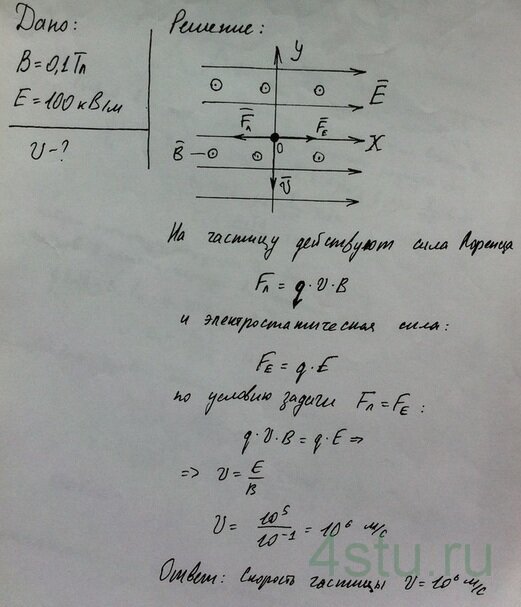 Дано:
B = 0,1 Тл
E = 100 кВ/м
υ - ?
Решение:
y
E̅
F̅л
F̅E
0
X
B̅
υ̅
На частицу действуют сила Лоренца
Fл = q · υ · B
и электростатическая сила:
FE = q · E
по условию задачи Fл = FE :
q · υ · B = q · E =>
=> υ = E/B
υ = 10⁵/10⁻¹ = 10⁶ м/с
Ответ: Скорость частицы υ = 10⁶ м/с
4stu.ru